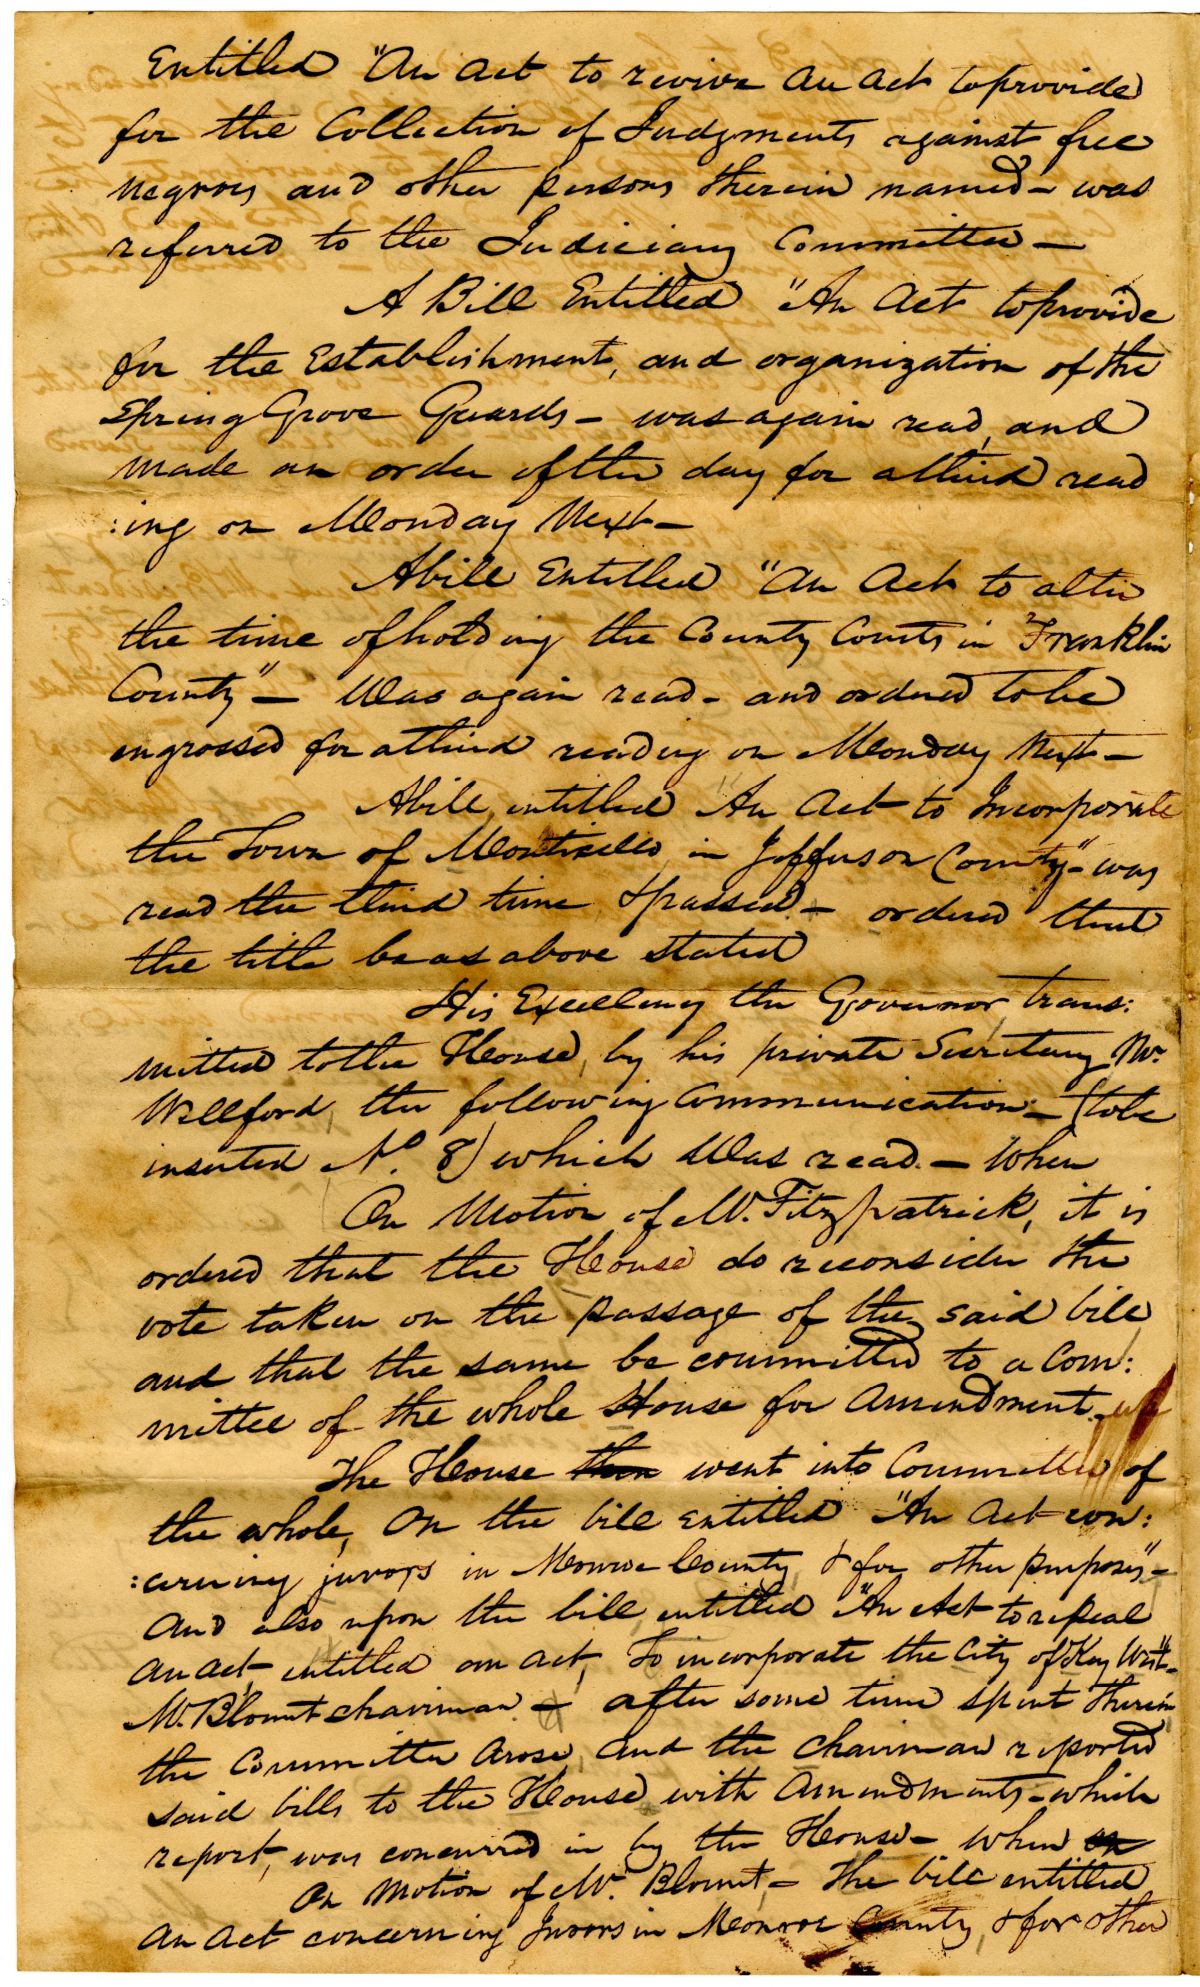 Entitled "An act to revive An Act to provide
for the Collection of Judgments against free
negroes and other persons therein named - was
referred to the Judiciary Committee -
A Bill Entitled "An Act to provide
for the Establishment, and organization of the
Spring Grove Guards - was again read, and
made an order of the day for a third read
:ing on Monday Next -
A bill Entitled "An Act to alter
the time of holding the County Courts in "Franklin
County" - Was again read - and ordered to be
engrossed for a third reading on Monday Next -
A bill entitled An Act to Incorporate
the Town of Monticello in Jefferson County" - was
read the third time & passed - ordered that
the title be as above stated
His Excellency the Governor, trans:
mitted to the House, by his private Secretary Mr.
Willford, the following Communication - (to be
inserted No. 8) which Was read. - When
On Motion of Mr. Fitzpatrick, it is
ordered that the House do reconsider the
vote taken on the passage of the said bill
and that the same be committed to a Com:
mittee of the whole House for Amendment.
The House then went into Committee of
the whole, On the bill entitled "An Act con:
:cerning jurors in Monroe County & for other purposes" -
And also upon the bill entitled "An Act to repeal
An act entitled an act, To incorporate the City of Key West" -
Mr. Blount chairman - after some time spent therein
the Committee Arose, and the Chairman reported
said bills to the House with Amendments - which
report, was concurred in by the House - When on
On Motion of Mr. Blount - The bill entitled
An Act concerning Jurors in Monroe County, & for other